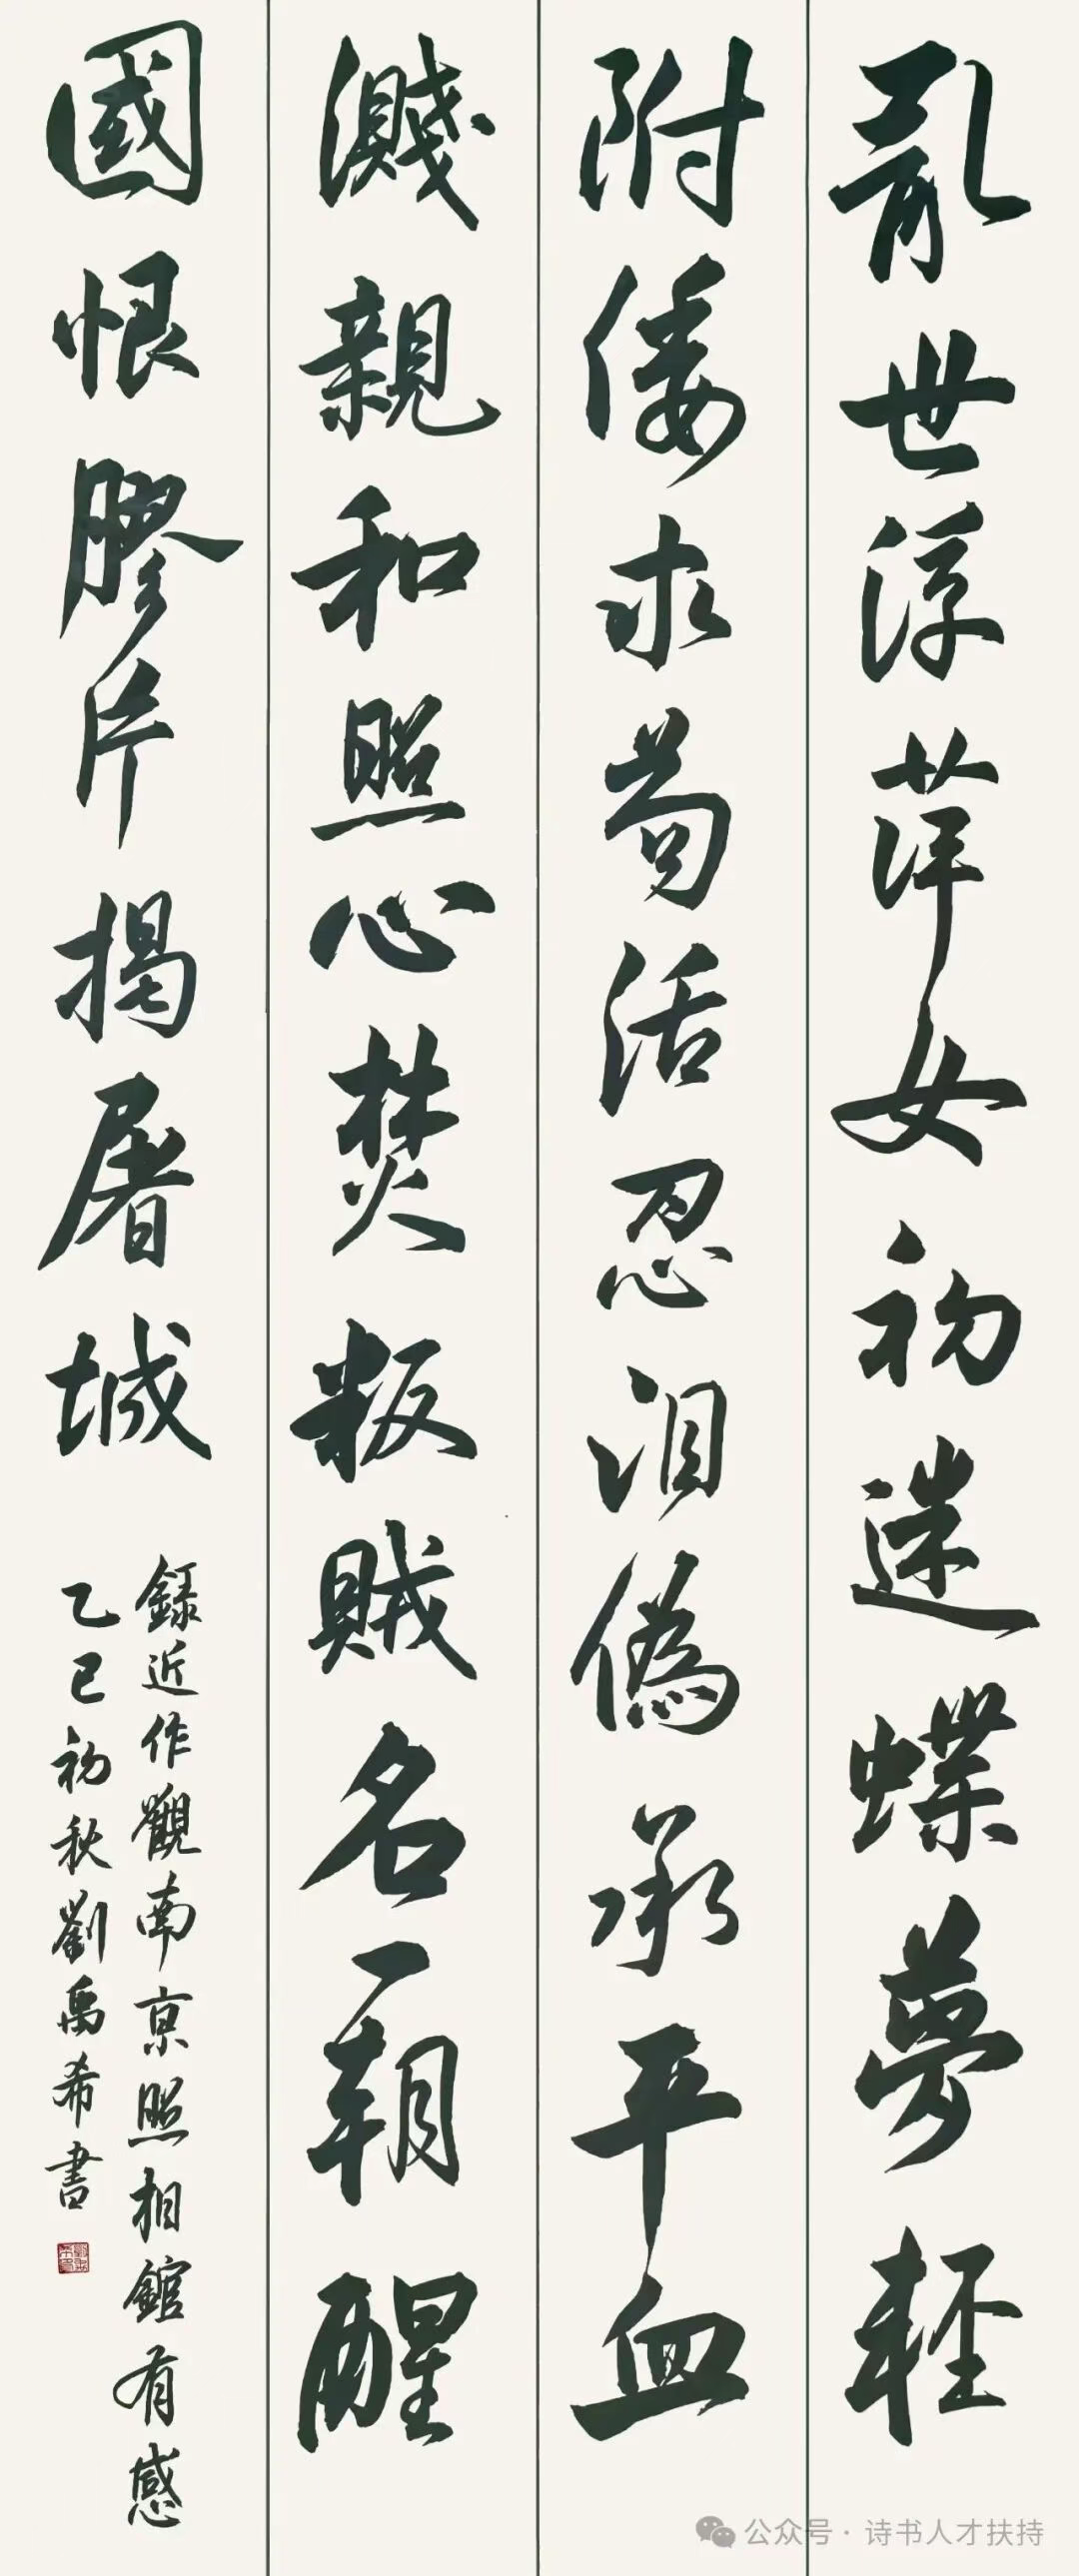 亂世浮萍女初迷蝶夢輕
附倭求苟活忍淚偽承平血
濺親和照心焚叛賊名一朝醒
國恨膠片揭屠城
錄近作觀南京照相館有感
乙巳初秋劉禹希書
公众号·诗书人才扶持